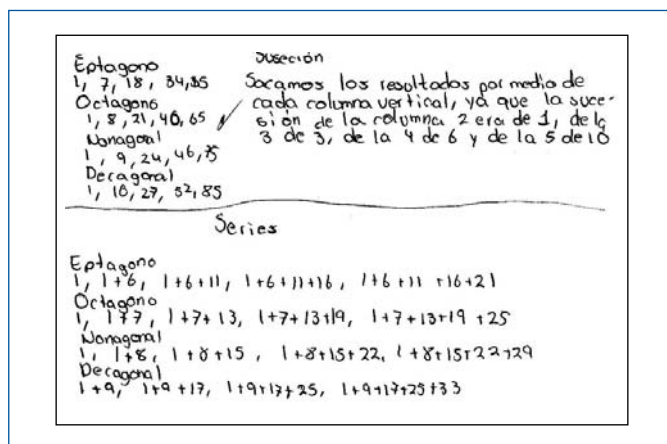 Eptagono
1, 7, 18, 34, 55
Octagono
1, 8, 21, 40, 65
Nonagonal
1, 9, 24, 46, 75
Decagonal
1, 10, 27, 52, 85
Suseción
Sacamos los resoltados por medio de
cada columna vertical, ya que la suce-
sión de la columna 2 era de 1, de la
3 de 3, de la 4 de 6 y de la 5 de 10
Series
Eptagono
1, 1+6, 1+6+11, 1+6+11+16, 1+6+11+16+21
Octagono
1, 1+7, 1+7+13, 1+7+13+19, 1+7+13+19+25
Nonagonal
1, 1+8, 1+8+15, 1+8+15+22, 1+8+15+22+29
Decagonal
1+9, 1+9+17, 1+9+17+25, 1+9+17+25+33